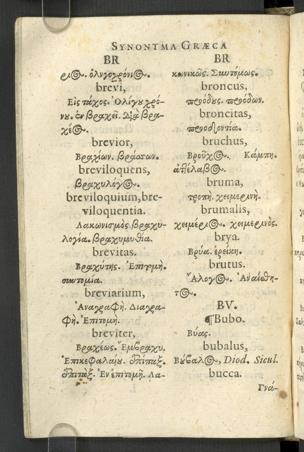 SYNONYMA GRÆCA
BR
ριος. ὀλιγοχρόνιος.
brevi,
Εἰς τάχος. Ὀλίγῳ χρό-
νῳ. ἐν βραχεῖ. διὰ βρα-
χέος.
brevior,
Βραχίων. βράσσων.
breviloquens,
βραχυλόγος.
breviloquium, bre-
viloquentia.
Λακωνισμὸς βραχυ-
λογία. βραχυμυθία.
brevitas.
Βραχύτης. Ἐπιτομὴ.
συντομία.
breviarium,
Ἀναγραφή. Διαγρα-
φή. Ἐπιτομή.
breviter,
Βραχέως. Ἐμβραχυ.
Ἐπικεφαλαίου. ἅπαξ.
ἅπαξ. Ἐν ἐπιτομῇ. Λα-
BR
κωνικῶς. Συντόμως.
broncus,
προόδους. προόδων.
broncitas,
bruchus,
Βροῦχος. Κάμπη.
ἀττέλαβος.
bruma,
τροπὴ χειμερινή.
brumalis,
χειμέριος. χειμερινός.
brya.
Βρύα. ἐρείκη.
brutus.
Ἄλογος. Ἀναίσθη-
τος.
BV.
¶Bubo.
Βύας.
bubalus,
Βύβαλος, Diod. Sicul.
bucca.
Γνά-